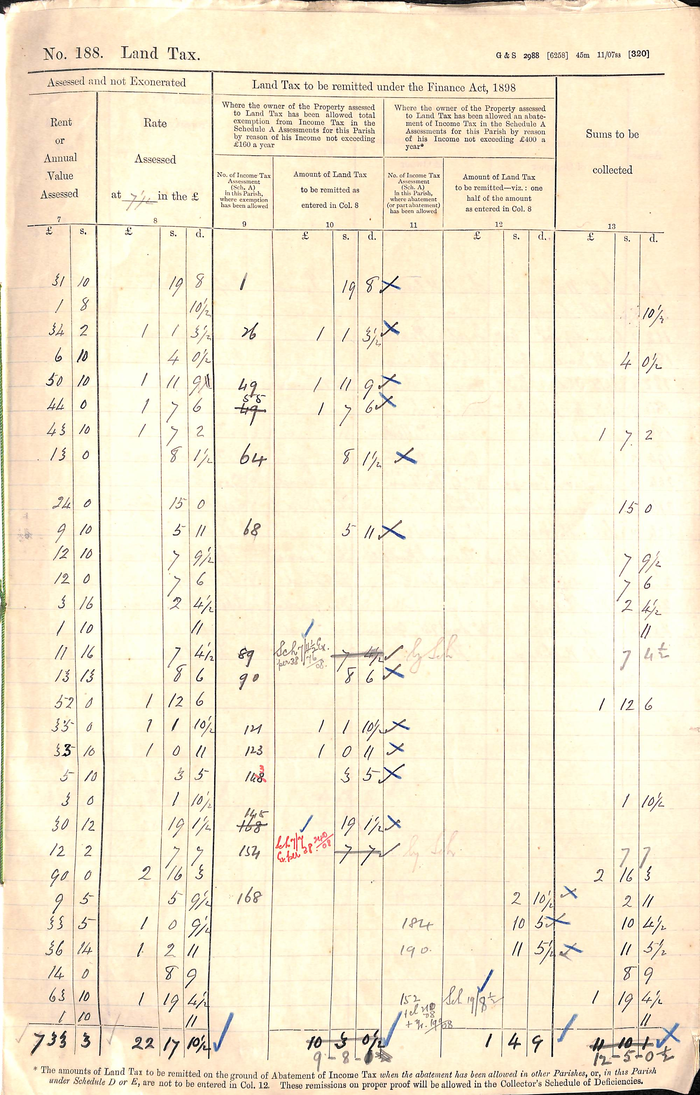 No. 188. Land Tax.
G & S 2988 [6258] 45m 11/07ss [320]
Assessed and not Exonerated
Land Tax to be remitted under the Finance Act, 1898
Rent or Annual Value Assessed
Rate Assessed at 7½ in the £
Where the owner of the Property assessed to Land Tax has been allowed total exemption from Income Tax in the Schedule A Assessments for this Parish by reason of his Income not exceeding £160 a year
Where the owner of the Property assessed to Land Tax has been allowed an abatement of Income Tax in the Schedule A Assessments for this Parish by reason of his Income not exceeding £400 a year*
Sums to be collected
No. of Income Tax Assessment (Sch. A) in this Parish, where exemption has been allowed
Amount of Land Tax to be remitted as entered in Col. 8
No. of Income Tax Assessment (Sch. A) in this Parish, where abatement (or part abatement) has been allowed
Amount of Land Tax to be remitted—viz.: one half of the amount as entered in Col. 8
7 8 9 10 11 12 13
£ s. £ s. d. £ s. d. £ s. d. £ s. d.
31 10 19 8 1 19 8 ×
1 8 10½ 10½
34 2 1 1 3½ 26 1 1 3½ ×
6 10 4 0½ 4 0½
50 10 1 11 9 49 1 11 9 ×
44 0 1 7 6 55 49 1 7 6 ×
43 10 1 7 2 1 7 2
13 0 8 1½ 64 8 1½ ×
24 0 15 0 15 0
9 10 5 11 68 5 11 ×
12 10 7 9½ 7 9½
12 0 7 6 7 6
3 16 2 4½ 2 4½
1 10 11 11
11 16 7 4½ 89 7 4½ ✓ 7 4½
13 13 8 6 90 8 6 ×
52 0 1 12 6 1 12 6
35 0 1 1 10½ 121 1 1 10½ ×
33 10 1 0 11 123 1 0 11 ×
5 10 3 5 3 5 ×
3 0 1 10½ 1 10½
30 12 19 1½ 145 168 ✓ 19 1½ ×
12 2 7 7 154 7 7 ✓ 7 7
90 0 2 16 3 2 16 3
9 5 5 9½ 168 2 10½ × 2 11
33 5 1 0 9½ 184 10 5 × 10 4½
36 14 1 2 11 190 11 5½ × 11 5½
14 0 8 9 8 9
63 10 1 19 4½ 152 Sch 19/8½ 1 19 4½
1 10 11 11
733 3 22 17 10½ ✓ 10 3 0½ ✓ 1 4 9 ✓ 11 10 1 ×
12-5-0½
* The amounts of Land Tax to be remitted on the ground of Abatement of Income Tax when the abatement has been allowed in other Parishes, or, in this Parish
under Schedule D or E, are not to be entered in Col. 12. These remissions on proper proof will be allowed in the Collector's Schedule of Deficiencies.